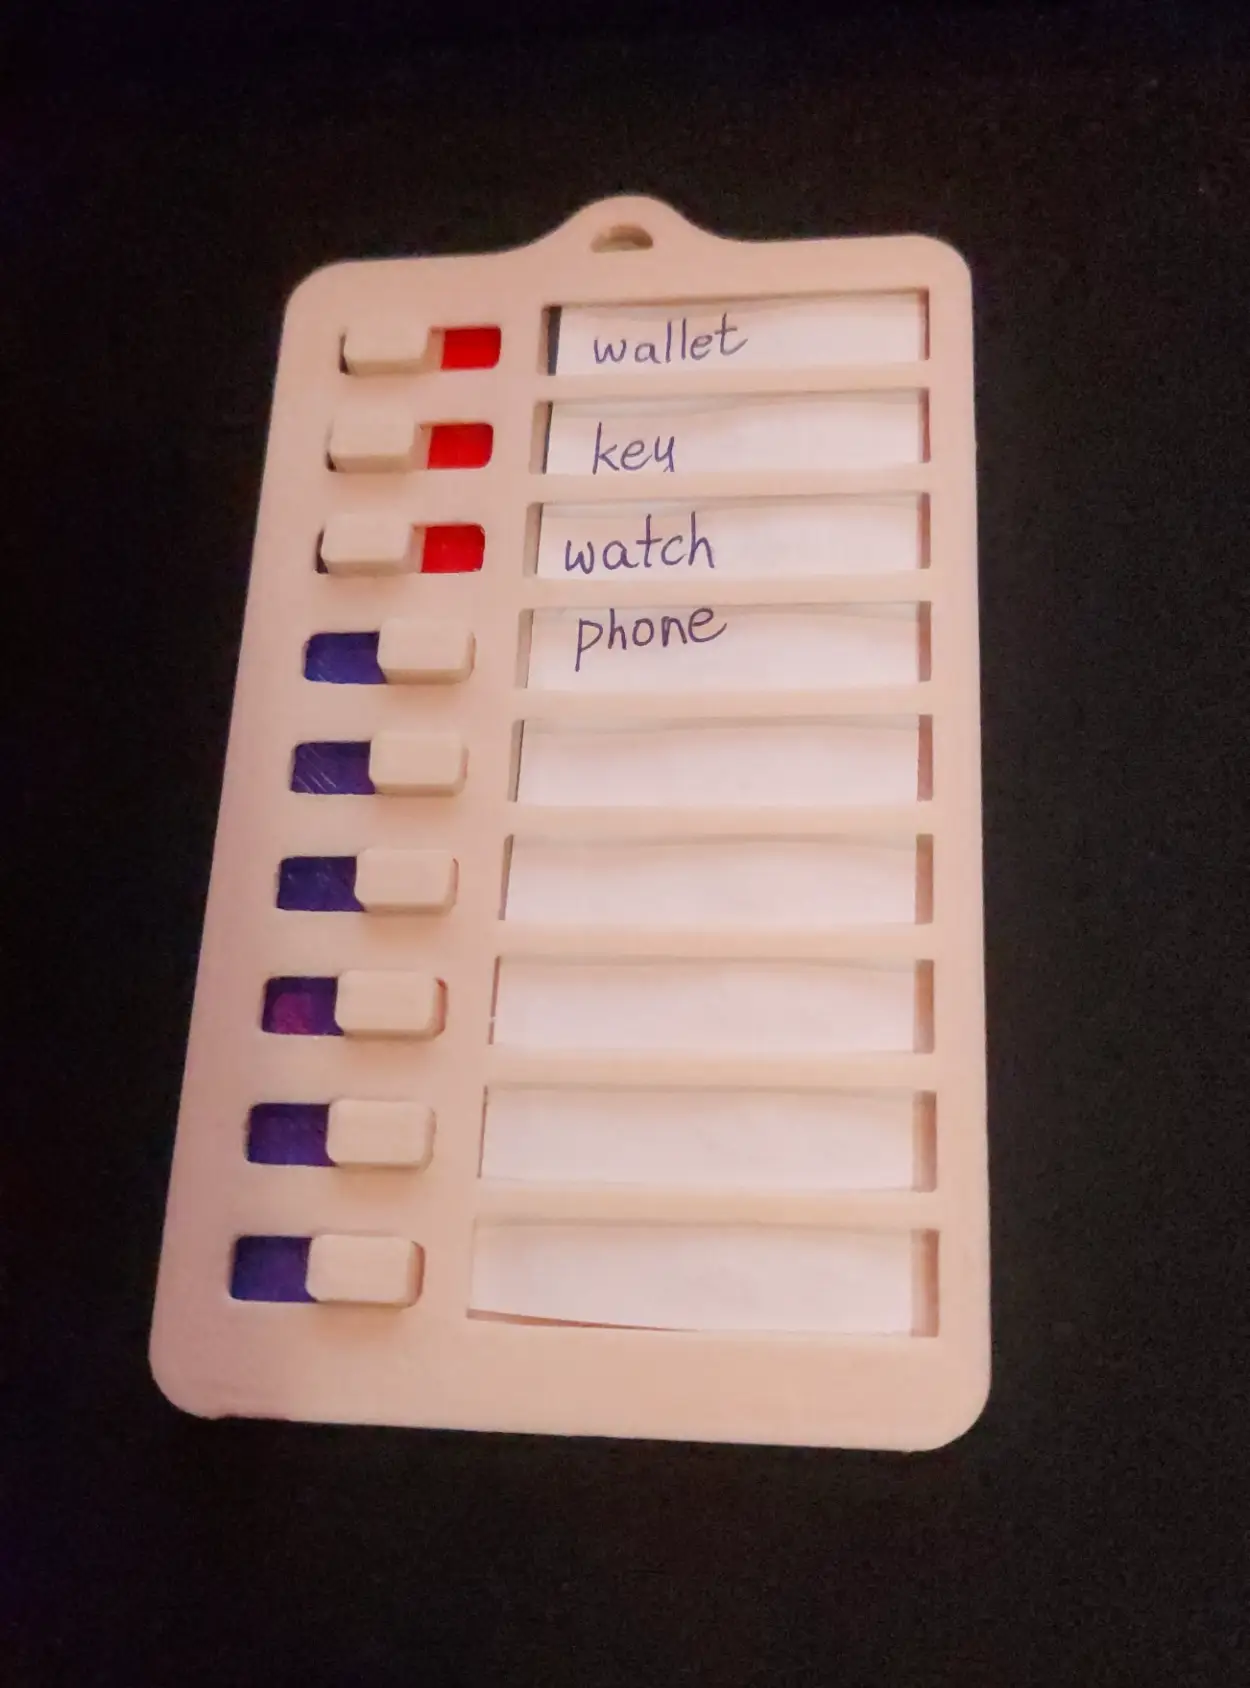 wallet
key
watch
phone